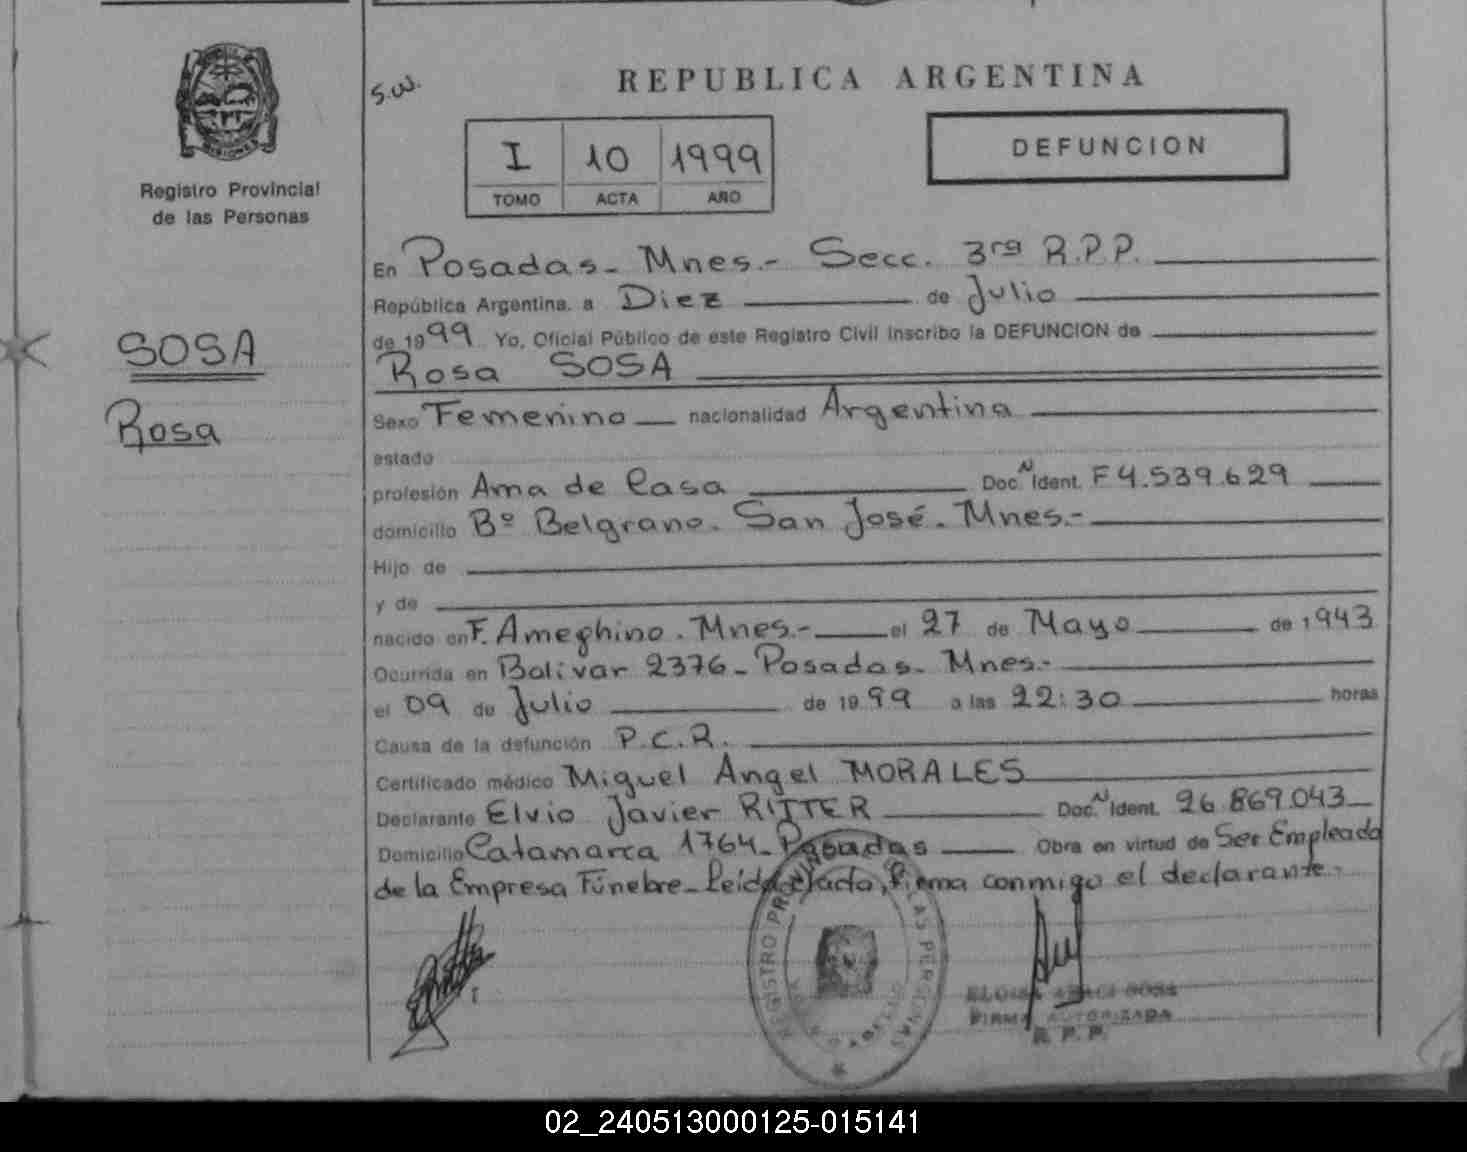 S.W.
REPUBLICA ARGENTINA
I 10 1999
TOMO ACTA AÑO
DEFUNCION
MISIONES
Registro Provincial
de las Personas
SOSA
Rosa
En Posadas - Mnes.- Secc. 3ra R.P.P.
República Argentina, a Diez de Julio
de 1999 Yo, Oficial Público de este Registro Civil inscribo la DEFUNCION de
Rosa SOSA
Sexo Femenino nacionalidad Argentina
estado
profesión Ama de Casa Doc.N Ident. F 4.539.629
domicilio Bº Belgrano. San José. Mnes.-
Hijo de
y de
nacido en F. Ameghino. Mnes.- el 27 de Mayo de 1943
Ocurrida en Bolivar 2376 - Posadas - Mnes.-
el 09 de Julio de 1999 a las 22:30 horas
Causa de la defunción P.C.R.
Certificado médico Miguel Angel MORALES
Declarante Elvio Javier RITTER Doc.N Ident. 26.869.043
Domicilio Catamarca 1764 - Posadas Obra en virtud de Ser Empleado
de la Empresa Fúnebre - Leída el acta, firma conmigo el declarante.-
REGISTRO PROVINCIAL DE LAS PERSONAS
FIRMA AUTORIZADA
R. P. P.
02_240513000125-015141